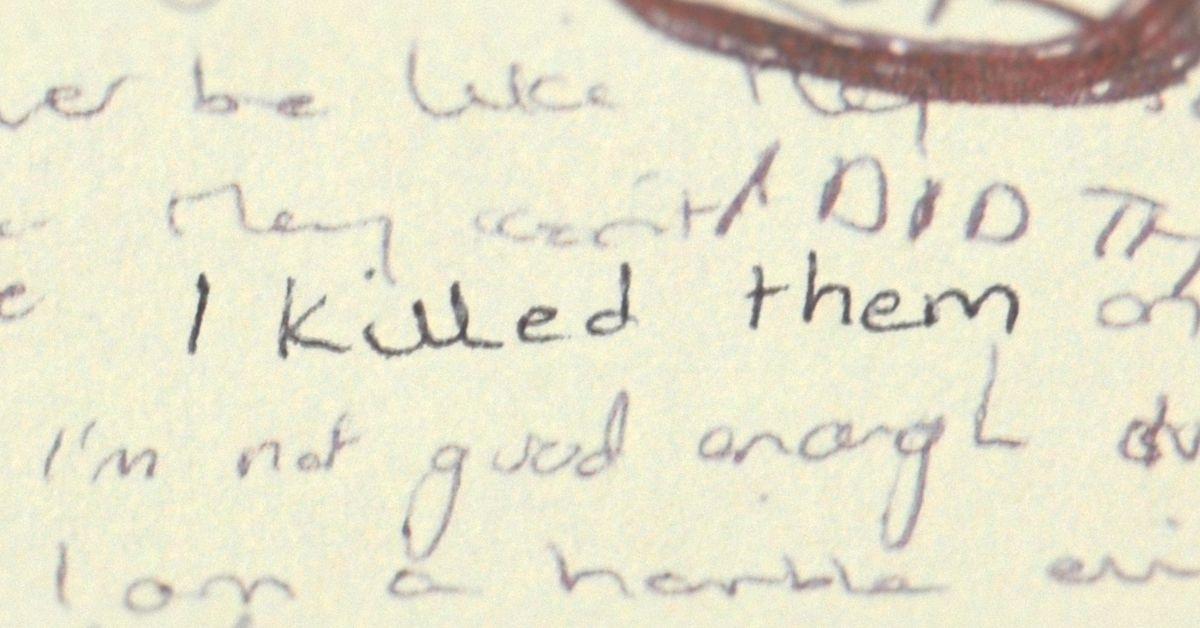 be like they
they can't I DID
I killed them on
I'm not good enough
I am a horrible evi